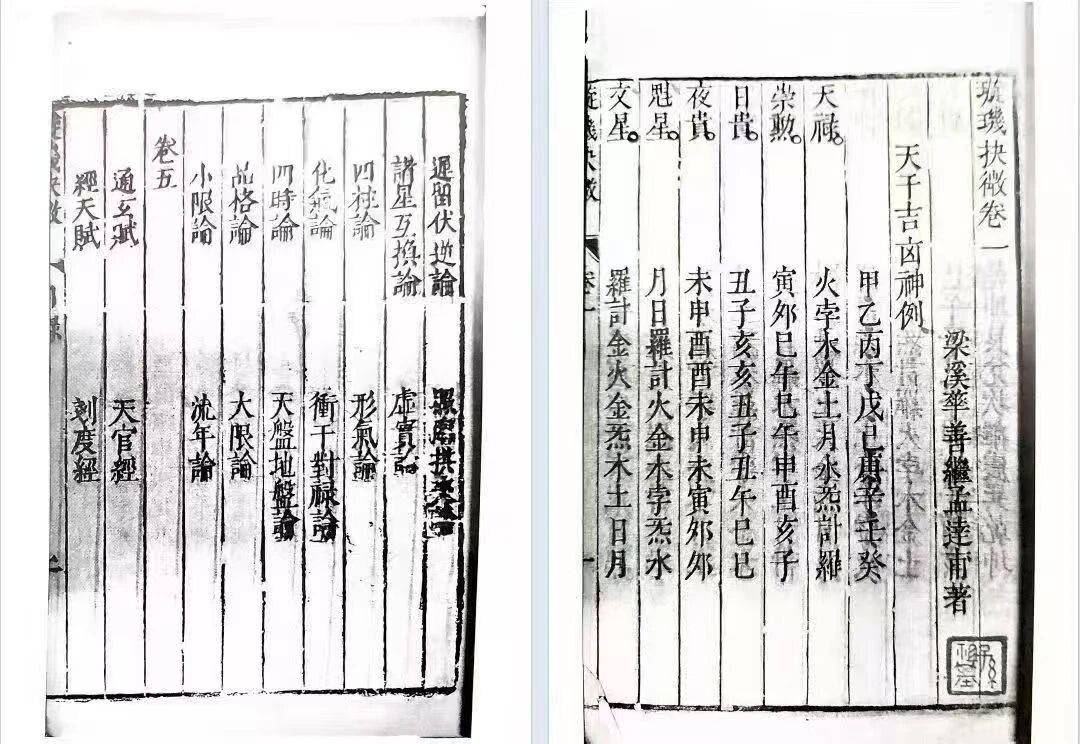 遲留伏逆論　照臨拱夾論
諸星互換論　虛實論
四柱論　形氣論
化氣論　衝干對祿論
四時論　天盤地盤論
品格論　大限論
小限論　流年論
卷五
通玄賦　天官經
經天賦　刻度經
璇璣抉微　目錄
璇璣抉微卷一
梁溪華善繼孟達甫著
天干吉凶神例
甲乙丙丁戊己庚辛壬癸
天祿。　火孛木金土月水炁計羅
榮勲。　寅夘巳午巳午申酉亥子
日貴。　丑子亥亥丑子丑午巳巳
夜貴。　未申酉酉未申未寅夘夘
魁星。　月日羅計火金木孛炁水
文星。　羅計金火金炁木土日月
璇璣抉微　卷一　一